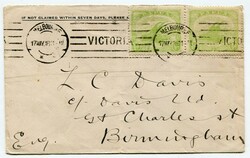 IF NOT CLAIMED WITHIN SEVEN DAYS, PLEASE
MELBOURNE
VICTORIA
L C Davis
c/o Davis Ltd
Charles St
Birmingham
Eng.